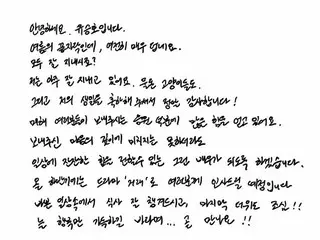 안녕하세요. 유승호입니다.
여름의 끝자락인데, 여전히 매우 덥네요.
모두 잘 지내시죠?
저는 아주 잘 지내고 있어요. 물론 고양이들도.
그리고 저의 생일을 축하해 주셔서 정말 감사합니다!
매해 여러분들이 보내주시는 응원 덕분에 많은 힘을 얻고 있어요.
보내주신 마음의 깊이에 미치지는 못하더라도
일상에 잔잔한 힘을 전할 수 있는 그런 배우가 되도록 하겠습니다.
올 하반기에는 드라마 '거래'로 여러분께 인사드릴 예정입니다
바쁜 일상속에서 식사 잘 챙겨드시고, 마지막 더위도 조심!!
늘 행복만 가득하길 바라며... 곧 만나요!!